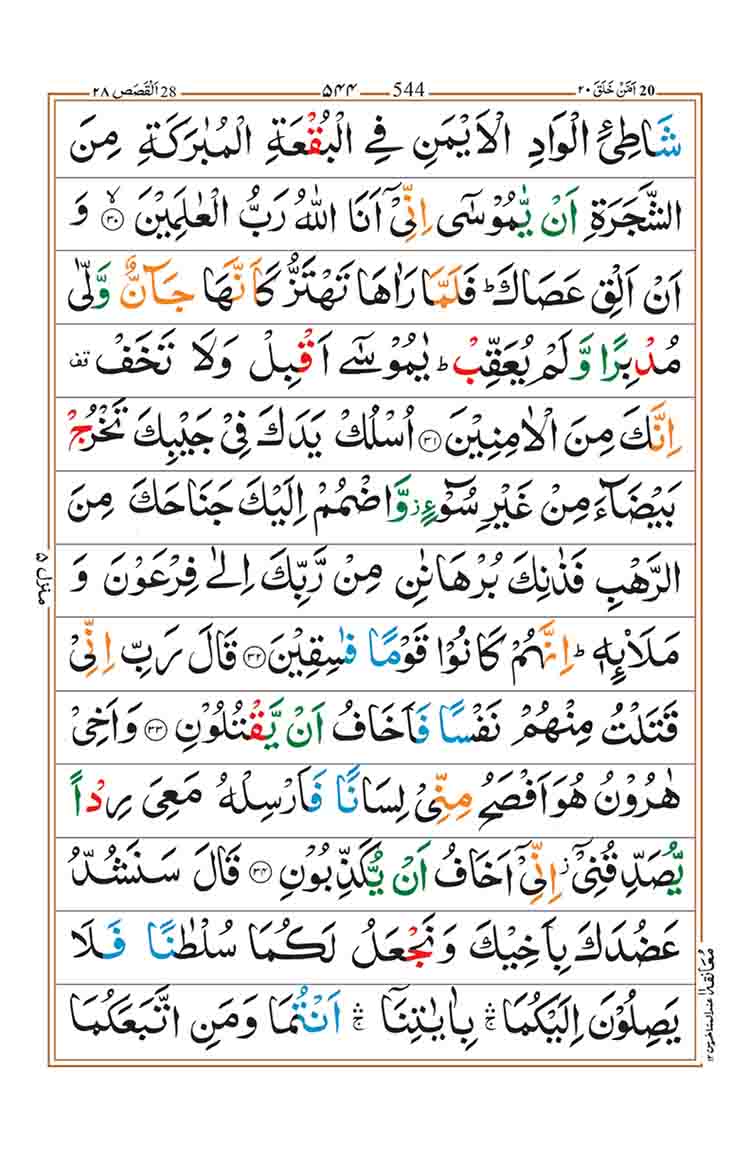 20 اَمَّنْ خَلَقَ ۲۰ 544 ۵۴۴ 28 اَلْقَصَص ۲۸
شَاطِئِ الْوَادِ الْاَيْمَنِ فِی الْبُقْعَةِ الْمُبٰرَكَةِ مِنَ
الشَّجَرَةِ اَنْ يّٰمُوْسٰۤى اِنِّیْۤ اَنَا اللّٰهُ رَبُّ الْعٰلَمِيْنَ ۙ‏﴿۳۰﴾ وَ
اَنْ اَلْقِ عَصَاكَ ؕ فَلَمَّا رَاٰهَا تَهْتَزُّ كَاَنَّهَا جَآنٌّ وَّلّٰى
مُدْبِرًا وَّلَمْ يُعَقِّبْ ؕ يٰمُوْسٰۤى اَقْبِلْ وَلَا تَخَفْ قف
اِنَّكَ مِنَ الْاٰمِنِيْنَ ﴿۳۱﴾ اُسْلُكْ يَدَكَ فِیْ جَيْبِكَ تَخْرُجْ
بَيْضَآءَ مِنْ غَيْرِ سُوْٓءٍ ز وَّاضْمُمْ اِلَيْكَ جَنَاحَكَ مِنَ
الرَّهْبِ فَذٰنِكَ بُرْهَانٰنِ مِنْ رَّبِّكَ اِلٰى فِرْعَوْنَ وَ
مَلَا۟ئِهٖ ؕ اِنَّهُمْ كَانُوْا قَوْمًا فٰسِقِيْنَ ﴿۳۲﴾ قَالَ رَبِّ اِنِّیْ
قَتَلْتُ مِنْهُمْ نَفْسًا فَاَخَافُ اَنْ يَّقْتُلُوْنِ ﴿۳۳﴾ وَاَخِیْ
هٰرُوْنُ هُوَ اَفْصَحُ مِنِّیْ لِسَانًا فَاَرْسِلْهُ مَعِیَ رِدْاً
يُّصَدِّقُنِیْۤ ز اِنِّیْۤ اَخَافُ اَنْ يُّكَذِّبُوْنِ ﴿۳۴﴾ قَالَ سَنَشُدُّ
عَضُدَكَ بِاَخِيْكَ وَنَجْعَلُ لَكُمَا سُلْطٰنًا فَلَا
يَصِلُوْنَ اِلَيْكُمَا ۛۚ بِاٰيٰتِنَاۤ ۛۚ اَنْتُمَا وَمَنِ اتَّبَعَكُمَا
منزل ۵
معانقة ۱۱ عند المتاخرين ۱۲